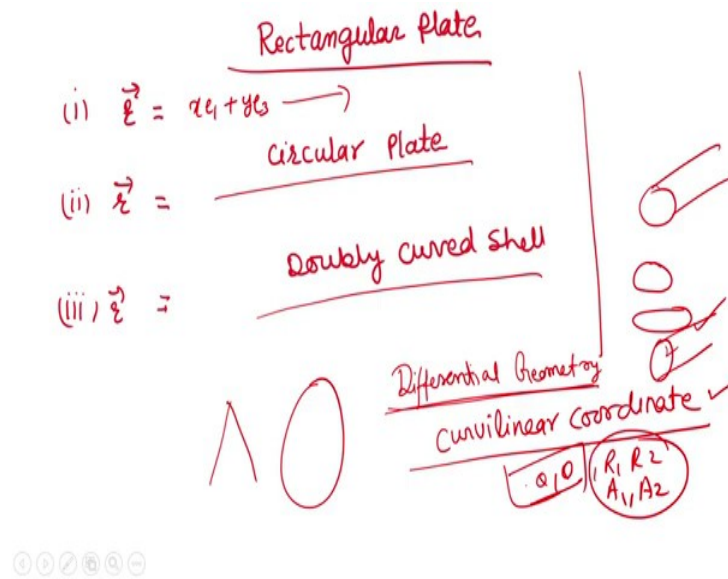 Rectangular Plate
(i) r⃗ = xe₁ + ye₃ →
Circular Plate
(ii) r⃗ =
Doubly Curved Shell
(iii) r⃗ =
Differential Geometry
Curvilinear Coordinate ✓
R₁ R₂
A₁, A₂